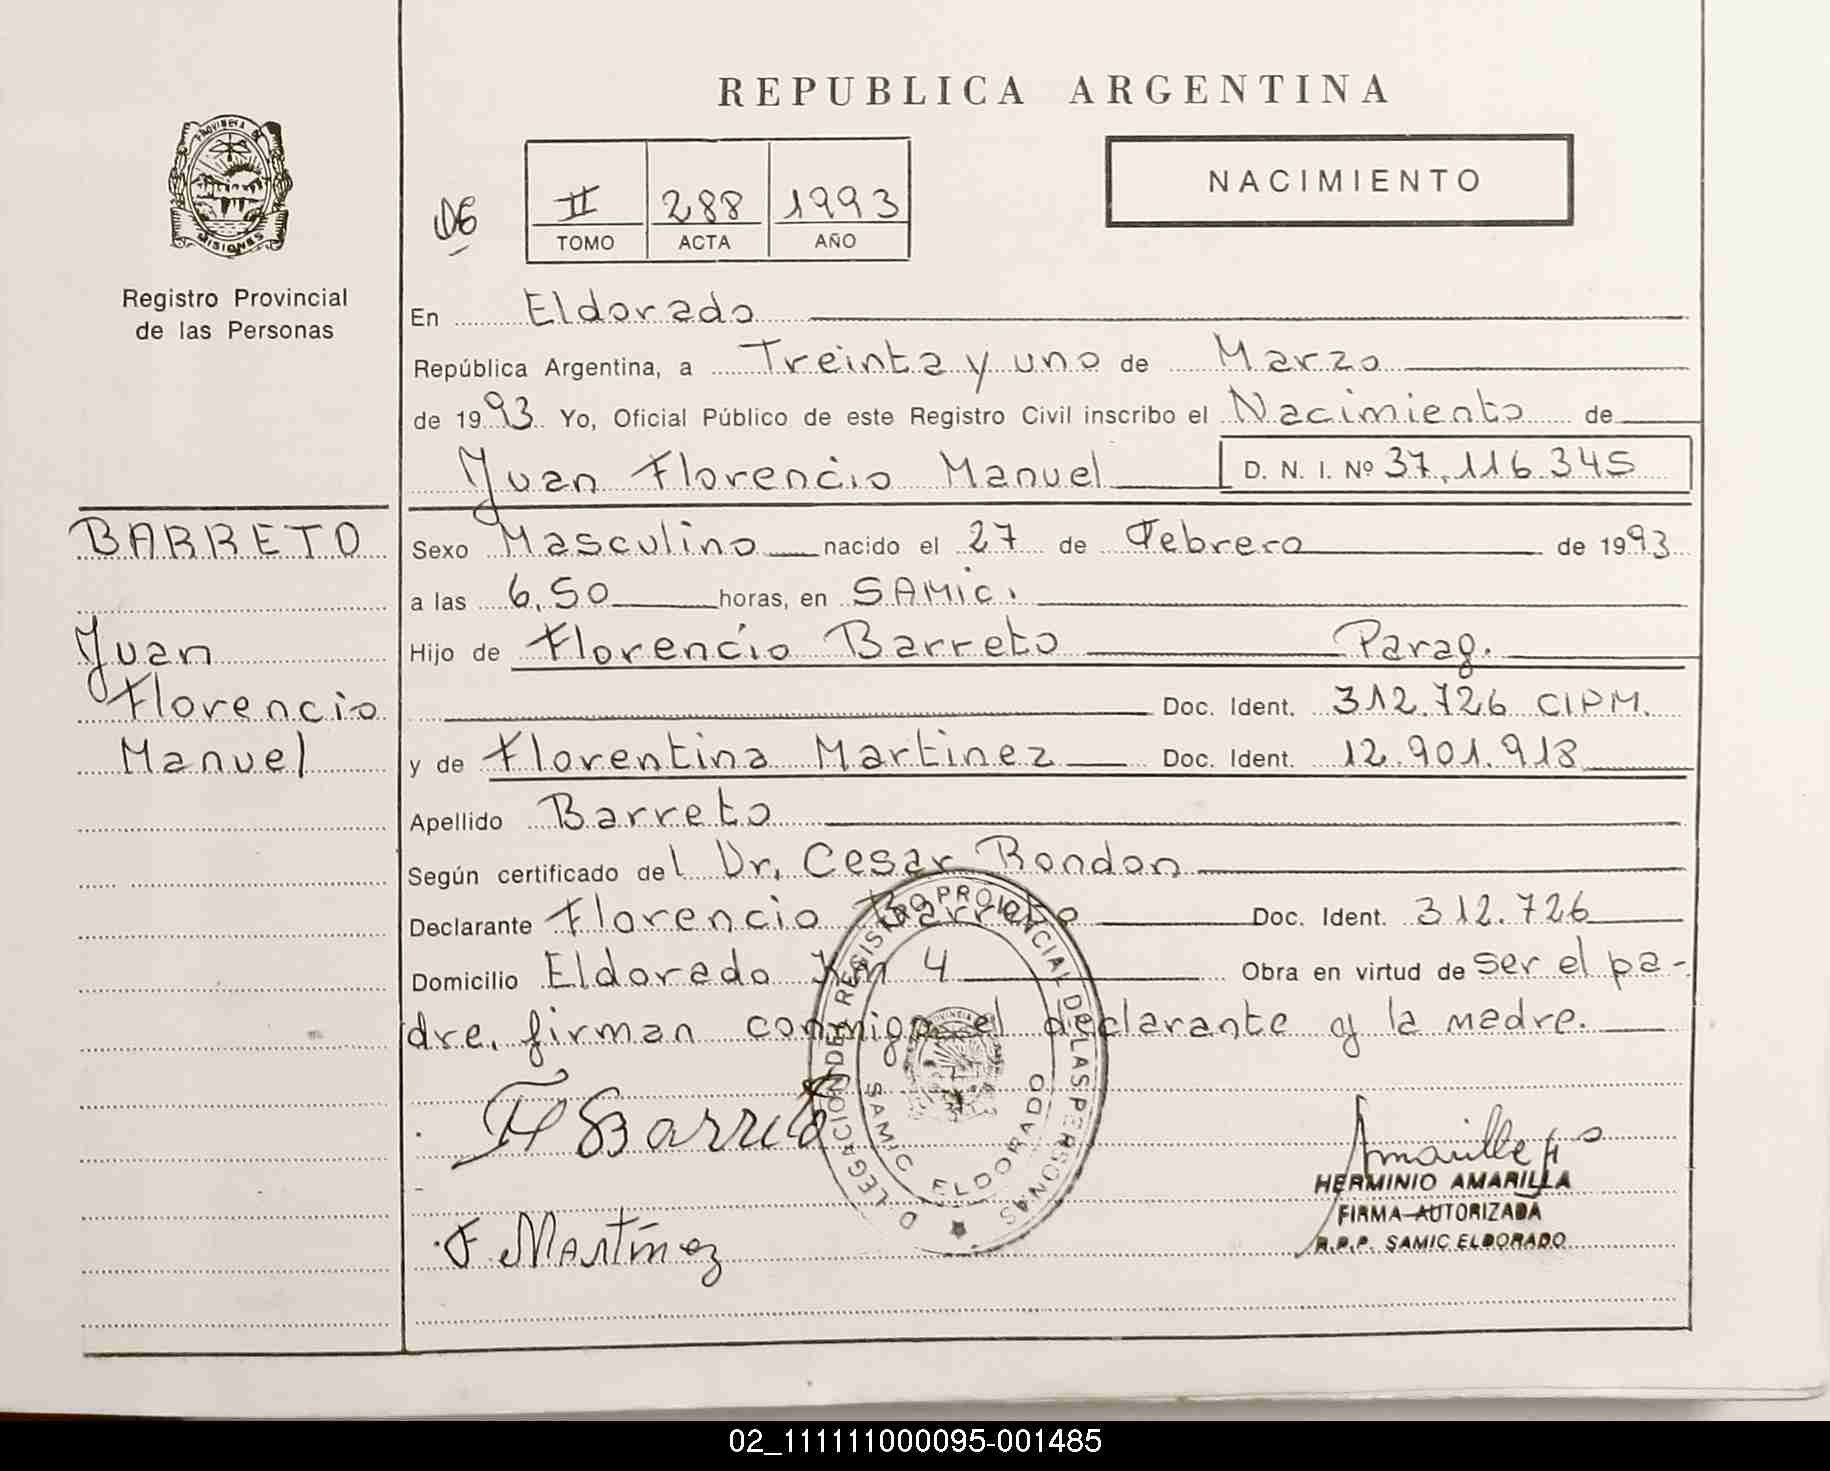 REPUBLICA ARGENTINA
PROVINCIA DE
MISIONES
Registro Provincial
de las Personas
II 288 1993
TOMO ACTA AÑO
NACIMIENTO
En Eldorado
República Argentina, a Treinta y uno de Marzo
de 1993 Yo, Oficial Público de este Registro Civil inscribo el Nacimiento de
Juan Florencio Manuel D. N. I. Nº 37.116.345
BARRETO
Juan
Florencio
Manuel
Sexo Masculino nacido el 27 de Febrero de 1993
a las 6,50 horas, en SAMIC.
Hijo de Florencio Barreto Parag.
Doc. Ident. 312.726 CIPM.
y de Florentina Martinez Doc. Ident. 12.901.918
Apellido Barreto
Según certificado del Dr. Cesar Rondon
Declarante Florencio Barreto Doc. Ident. 312.726
Domicilio Eldorado Km 4 Obra en virtud de ser el pa-
dre, firman conmigo el declarante y la madre.
DELEGACION DE REGISTRO PROVINCIAL DE LAS PERSONAS
SAMIC ELDORADO
F Barreto
F. Martínez
HERMINIO AMARILLA
FIRMA AUTORIZADA
R.P.P. SAMIC ELDORADO
02_111111000095-001485